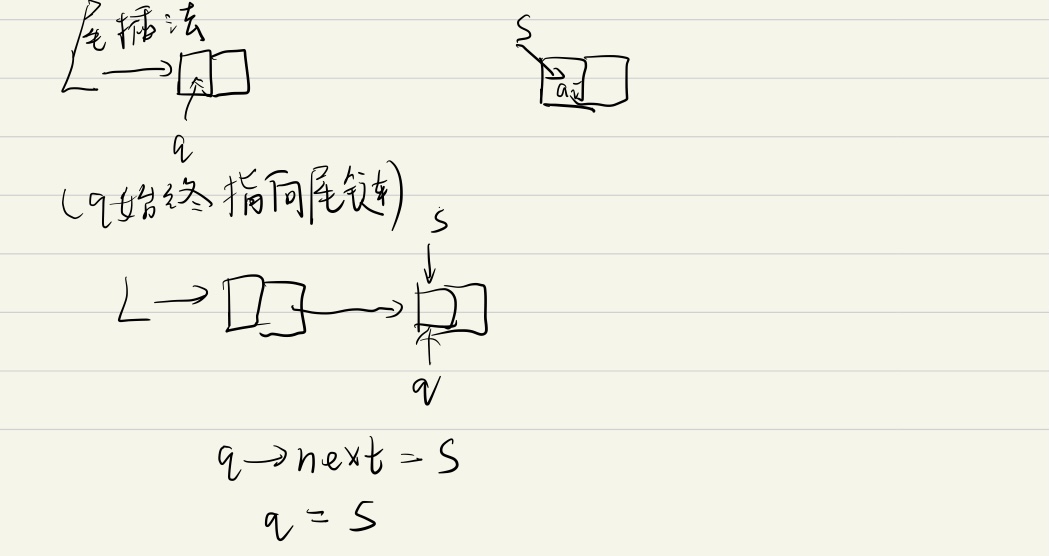 尾插法
S
L
ai
q
(q始终指向尾链)
S
L
q
q→next = S
q = S